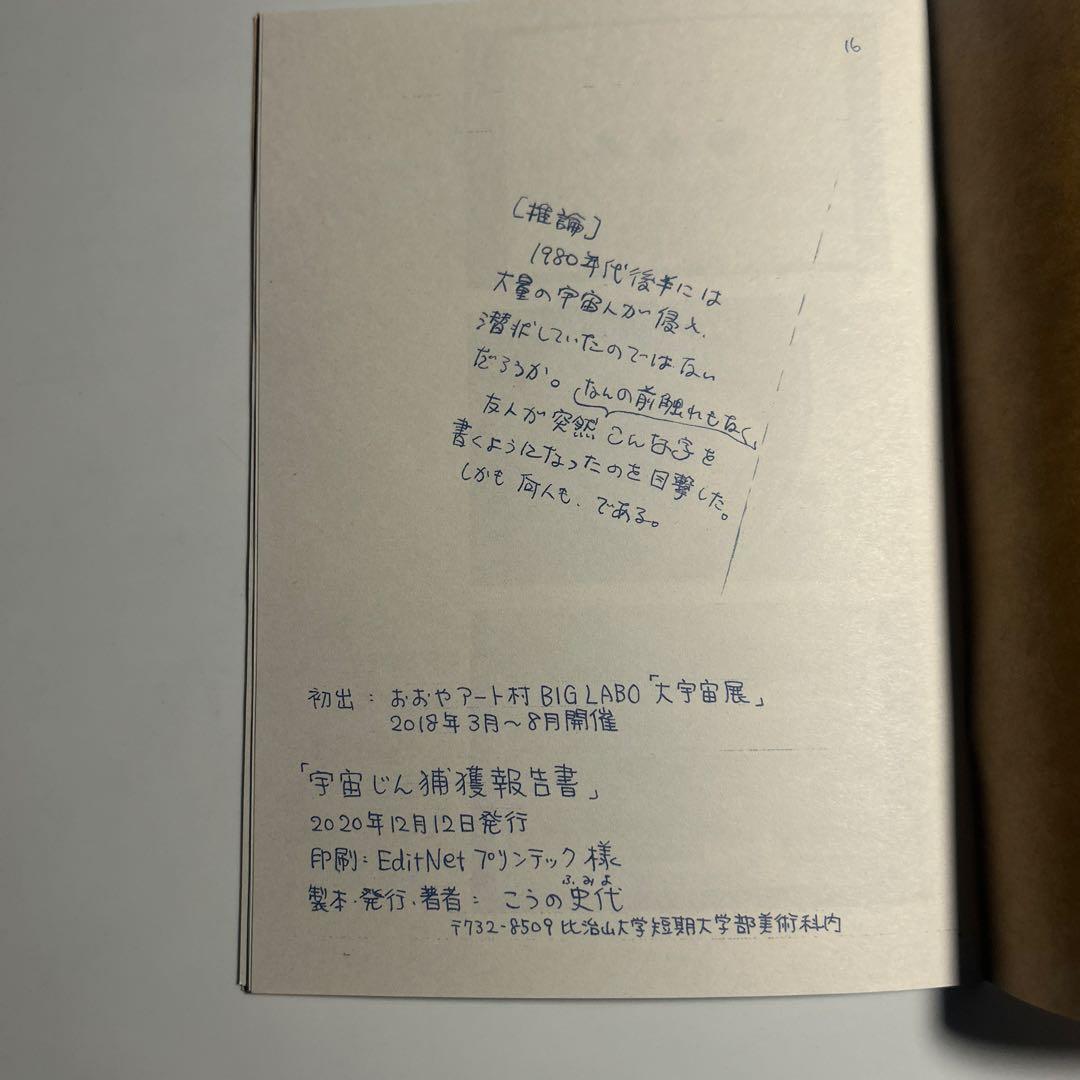 16
[推論]
1980年代後半には
大量の宇宙人が侵入、
潜伏していたのではない
だろうか。なんの前触れもなく、
友人が突然こんな字を
書くようになったのを目撃した。
しかも何人も、である。
初出：おおやアート村 BIG LABO「大宇宙展」
2018年3月～8月開催
「宇宙じん捕獲報告書」
2020年12月12日発行
印刷：EditNet プリンテック 様
ふみよ
製本・発行・著者：こうの史代
〒732-8509 比治山大学短期大学部美術科内